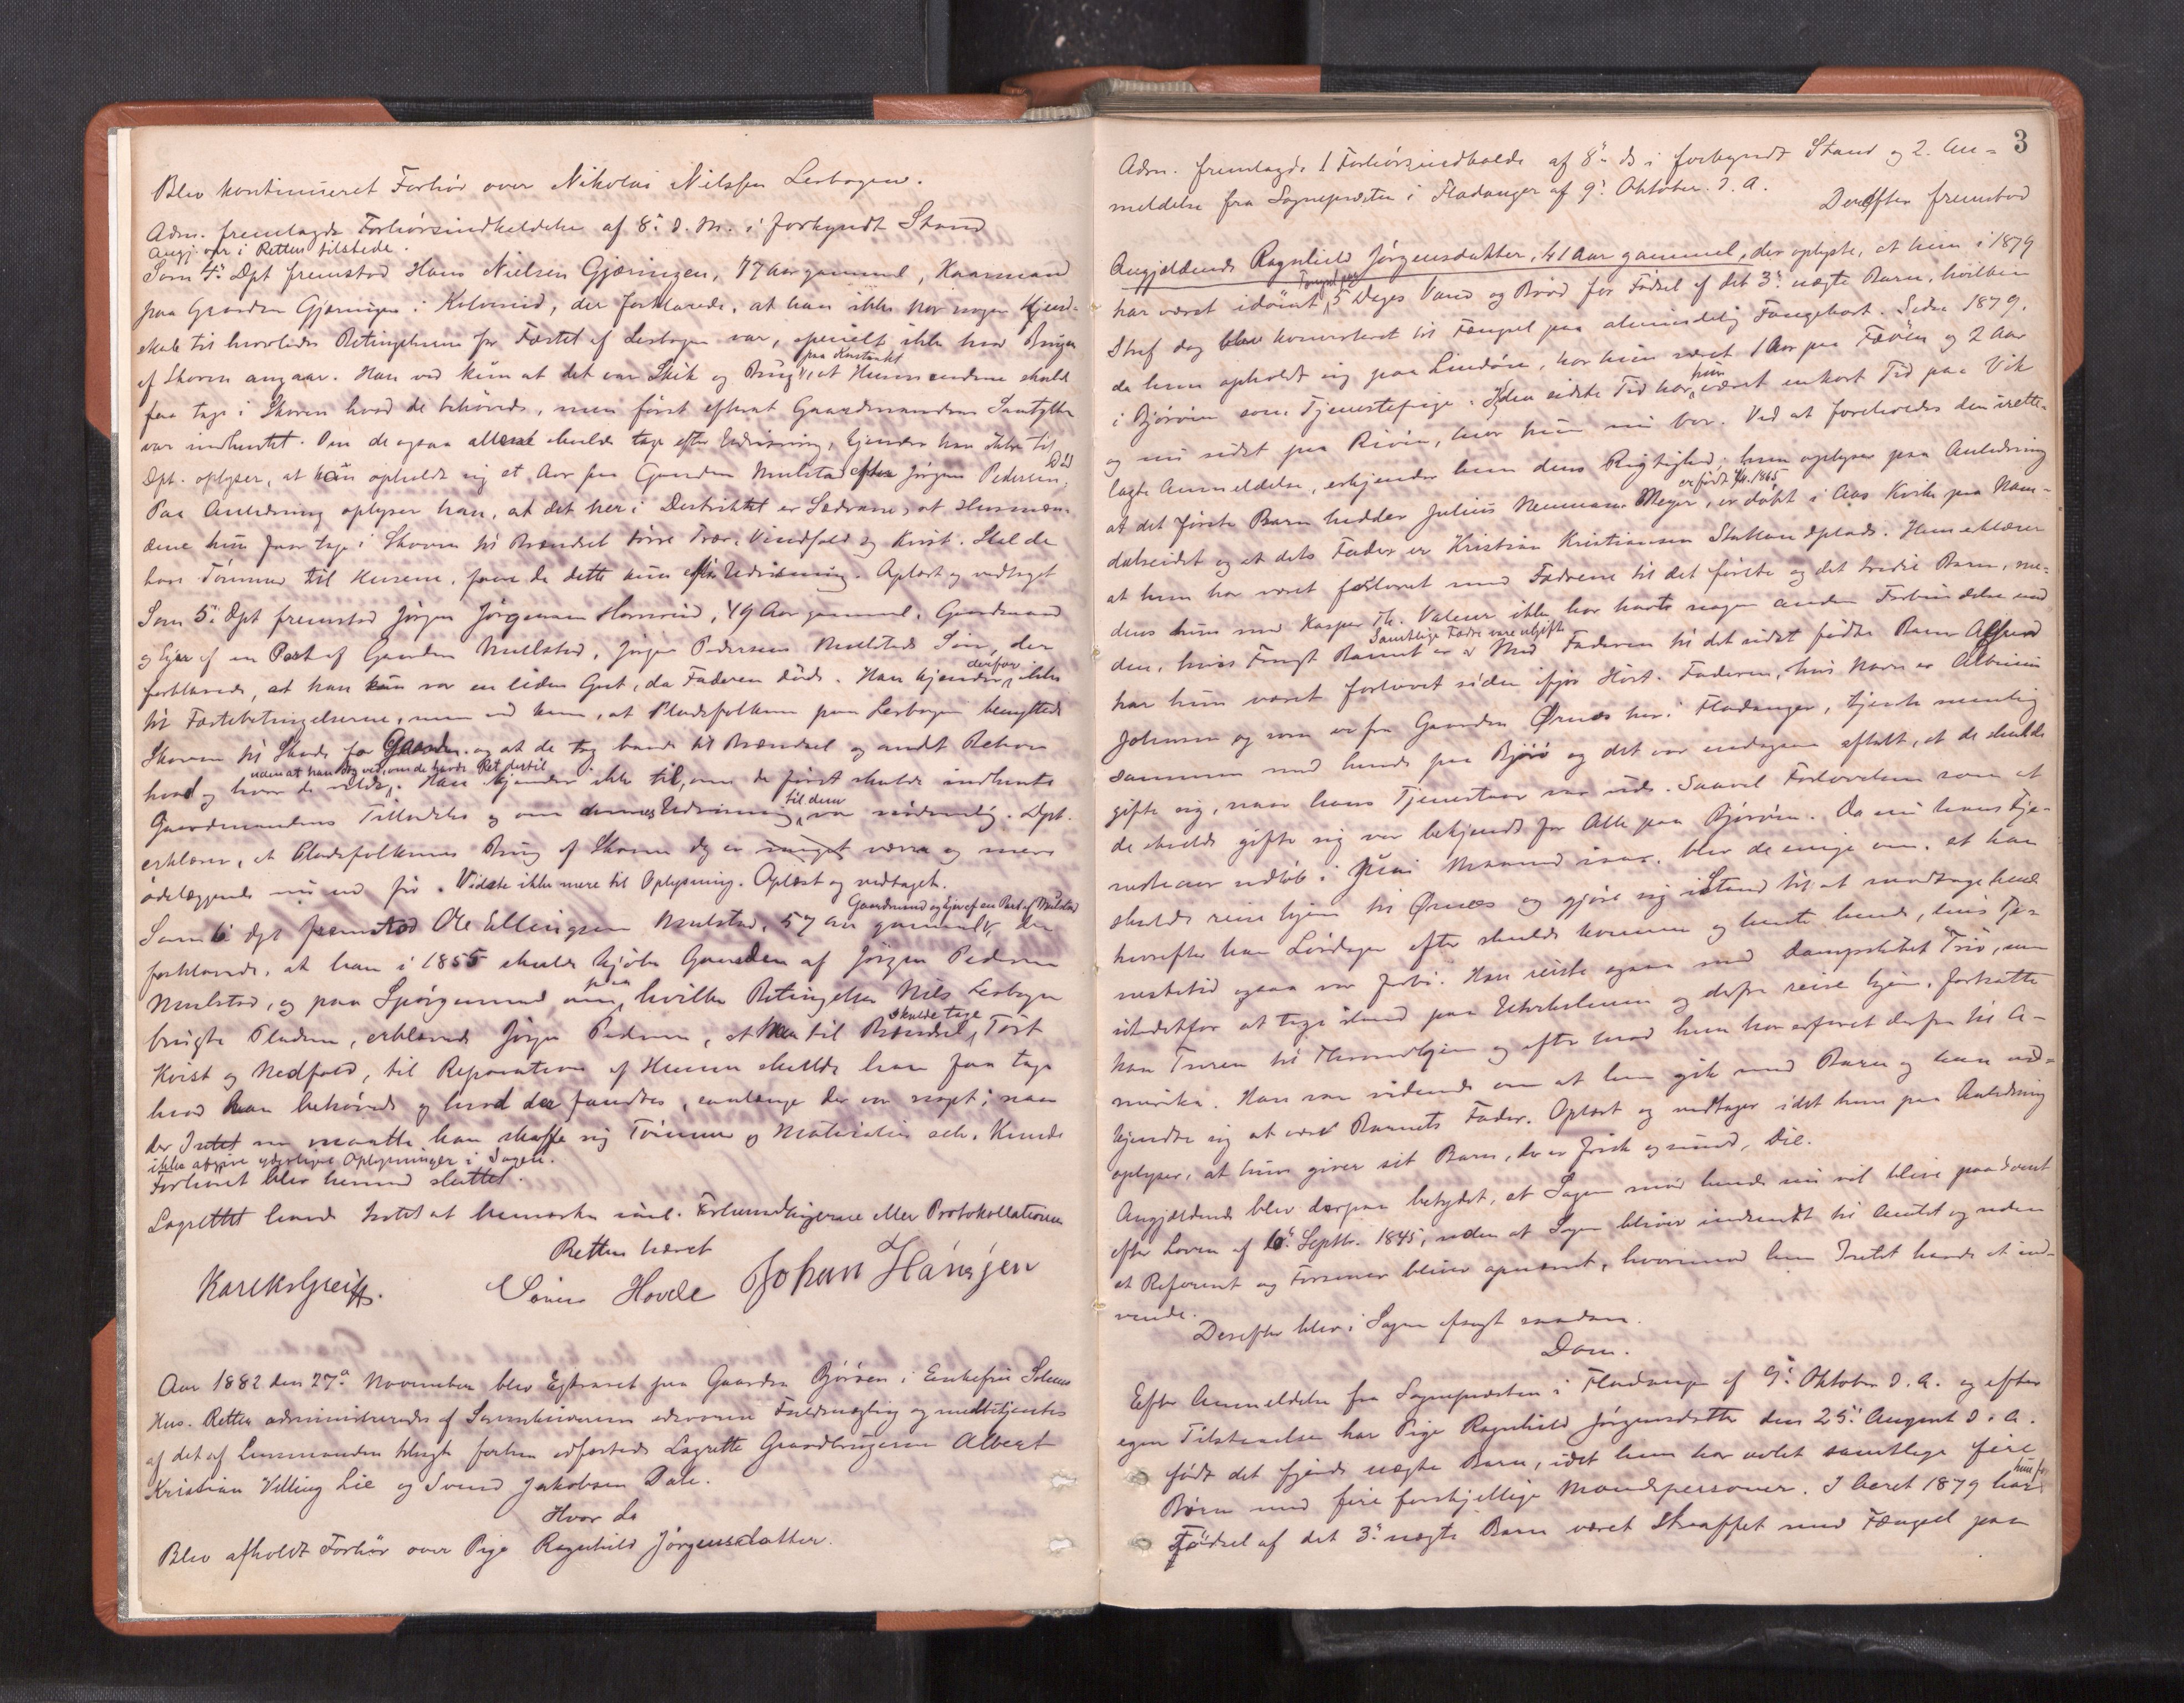 Blev kontinueret Forhør over Nikolai Nilssen Lerbogen.
Adm. fremlagde Forhørsindkaldelse af 8de d. M. i forkyndt Stand
Angj. var i Retten tilstede.
Som 4de Dpt fremstod Hans Nielsen Gjæringen, 77 Aar gammel, Kaarmand
paa Gaarden Gjæringen i Kolvereid, der forklarede, at han ikke har nogen Kjend-
skab til hvorledes Betingelserne for Fæstet af Lerbogen var, specielt ikke hvad Brugen
af Skoven angaar. Han ved kun at det var Skik og Brug, paa Kontrakt at Husmændene skulde
faa tage i Skoven hvad de behøvede, men først efterat Gaardmandens Samtykke
var indhentet. Om de ogsaa altid skulde tage efter Udvisning, kjender han ikke til.
Dpt. oplyser, at han opholdt sig et Aar paa Gaarden Mulstad efter Jørgen Pedersens Død
Paa Anledning oplyser han, at det her i Distriktet er Sædvane, at Husmæn-
dene kun faar tage i Skoven til Brændsel tørre Trær, Vindfald og Kvist. Skal de
have Tømmer til Husene, faar de dette kun efter Udvisning. Oplæst og vedtaget
Som 5te Dpt fremstod Jørgen Jørgensen Horseid, 49 Aar gammel, Gaardmand
og Ejer af en Part af Gaarden Mulstad, Jørgen Pedersen Mulstads Søn, der
forklarede, at han kun var en liden Gut, da Faderen døde. Han kjender derfor ikke
til Fæstebetingelserne, men ved kun, at Pladsfolkene paa Lerbogen benyttede
Skoven til Skade for Gaarden og at de tog baade til Brændsel og andet Behov
hvad og hvor de vilde, uden at han dog ved, om de havde Ret dertil. Han kjender ikke til, om de først skulde indhente
Gaardmandens Tilladelse og om dennes Udvisning til dem var nødvendig. Dpt.
erklærer, at Pladsfolkenes Brug af Skoven dog er meget værre og mere
ødelæggende nu end før. Vidste ikke mere til Oplysning. Oplæst og vedtaget.
Som 6te Dpt fremstod Ole Ellingsen Mulstad, 57 Aar gammel, Gaardmand og Ejer af en Part af Mulstad der
forklarede, at han i 1855 skulde kjøbe Gaarden af Jørgen Pedersen
Mulstad, og paa Spørgsmaal om, paa hvilke Betingelser Nils Lerbogen
brugte Pladsen, erklærede Jørgen Pedersen, at han til Brændsel skulde tage Tørt
Kvist og Nedfald, til Reparation af Husene skulde han faa tage
hvad han behøvede og hvad der fandtes, saalænge der var noget; naar
der Intet var maatte han skaffe sig Tømmer og Materialier selv. Kunde
ikke afgive yderligere Oplysninger i Sagen.
Forhøret blev hermed sluttet.
Lagrettet havde Intet at bemærke vedk. Forhandlingerne eller Protokollationen
Retten hævet
Søren Hovde Johan Hansen
Aar 1882 den 27de November blev Extraret sat paa Gaarden Bjørøen i Enkefru Solems
Hus. Retten administreredes af Sorenskriverens edsvorne Fuldmægtig og medbetjentes
af det af Lensmanden tilsagte forhen edfæstede Lagrette Gaardbrugerne Albert
Kristian Villing Lie og Svend Jakobsen Dale.
Hvor da
Blev afholdt Forhør over Pige Ragnhild Jørgensdatter.
3
Adm. fremlagde 1 Forhørsindkaldelse af 8de ds i forkyndt Stand og 2. An-
meldelse fra Sognepræsten i Fladanger af 9de Oktober d. A. Derefter fremstod
Angjældende Ragnhild Jørgensdatter, 41 Aar gammel, der oplyste, at hun i 1879
har været idømt Fængsel paa 5 Dages Vand og Brød for Fødsel af det 3de uægte Barn, hvilken
Straf dog blev konverteret til Fængsel paa almindelig Fangekost. Siden 1879,
da hun opholdt sig paa Lindøen, har hun været 1 Aar paa Feøen og 2 Aar
i Bjørøen som Tjenestepige. I den sidste Tid har hun været en kort Tid paa Vik
og nu sidst paa Riven, hvor hun nu bor. Ved at foreholdes den irette-
lagte Anmeldelse, erkjender hun dens Rigtighed; hun oplyser paa Anledning
at det første Barn hedder Julius Neumann Meyer, er født 1865, er døbt i Aas Kirke paa Nam-
dalseidet og at dets Fader er Kristian Kristiansen. Hun erklærer
at hun har været forlovet med Fædrene til det første og det tredie Barn, me-
dens hun med Kasper Th. Valeur ikke har havt nogen anden Forbindelse end
den, hvis Frugt Barnet er. Samtlige Fædre vare ugifte. Med Faderen til det sidst fødte Barn Alfred
har hun været forlovet siden ifjor Høst. Faderen, hvis Navn er Albrinius
Johnsen og som er fra Gaarden Ørnes her i Fladanger, tjente nemlig
sammen med hende paa Bjørø og det var endogsaa aftalt, at de skulde
gifte sig, naar hans Tjenestaar var ude. Saavel Forlovelsen som at
de skulde gifte sig var bekjendt for Alle paa Bjørøen. Da nu hans Tje-
nesteaar udløb i Juni Maaned iaar, blev de enige om, at han
skulde reise hjem til Ørnes og gjøre sig istand til at modtage hende
hvorefter han Lørdagen efter skulde komme og hente hende, hvis Tje-
nestetid ogsaa var forbi. Han reiste ogsaa med Dampskibet "Trio", men
istedetfor at tage iland paa og derfra reise hjem, fortsatte
han Turen til Throndhjem og efter hvad hun har erfaret derfra til A-
merika. Han var vidende om at hun gik med Barn og han ved-
kjendte sig at være Barnets Fader. Oplæst og vedtaget idet hun paa Anledning
oplyser, at hun giver sit Barn, der er frisk og sund, Die.
Angjældende blev derpaa betydet, at Sagen mod hende nu vil blive paadømt
efter Loven af 6te Septbr. 1845, uden at Sagen bliver indsendt til Amtet og uden
at Referent og Forsvarer bliver opnævnt, hvorimod hun Intet havde at ind-
vende.
Derefter blev i Sagen afsagt saadan
Dom.
Efter Anmeldelse fra Sognepræsten i Fladanger af 9de Oktober d. A. og efter
egen Tilstaaelse har Pige Ragnhild Jørgensdatter den 25de August d. A.
født det fjerde uægte Barn, idet hun har avlet samtlige fire
Børn med fire forskjellige Mandspersoner. I Aaret 1879 har hun for
Fødsel af det 3de uægte Barn været straffet med Fængsel paa